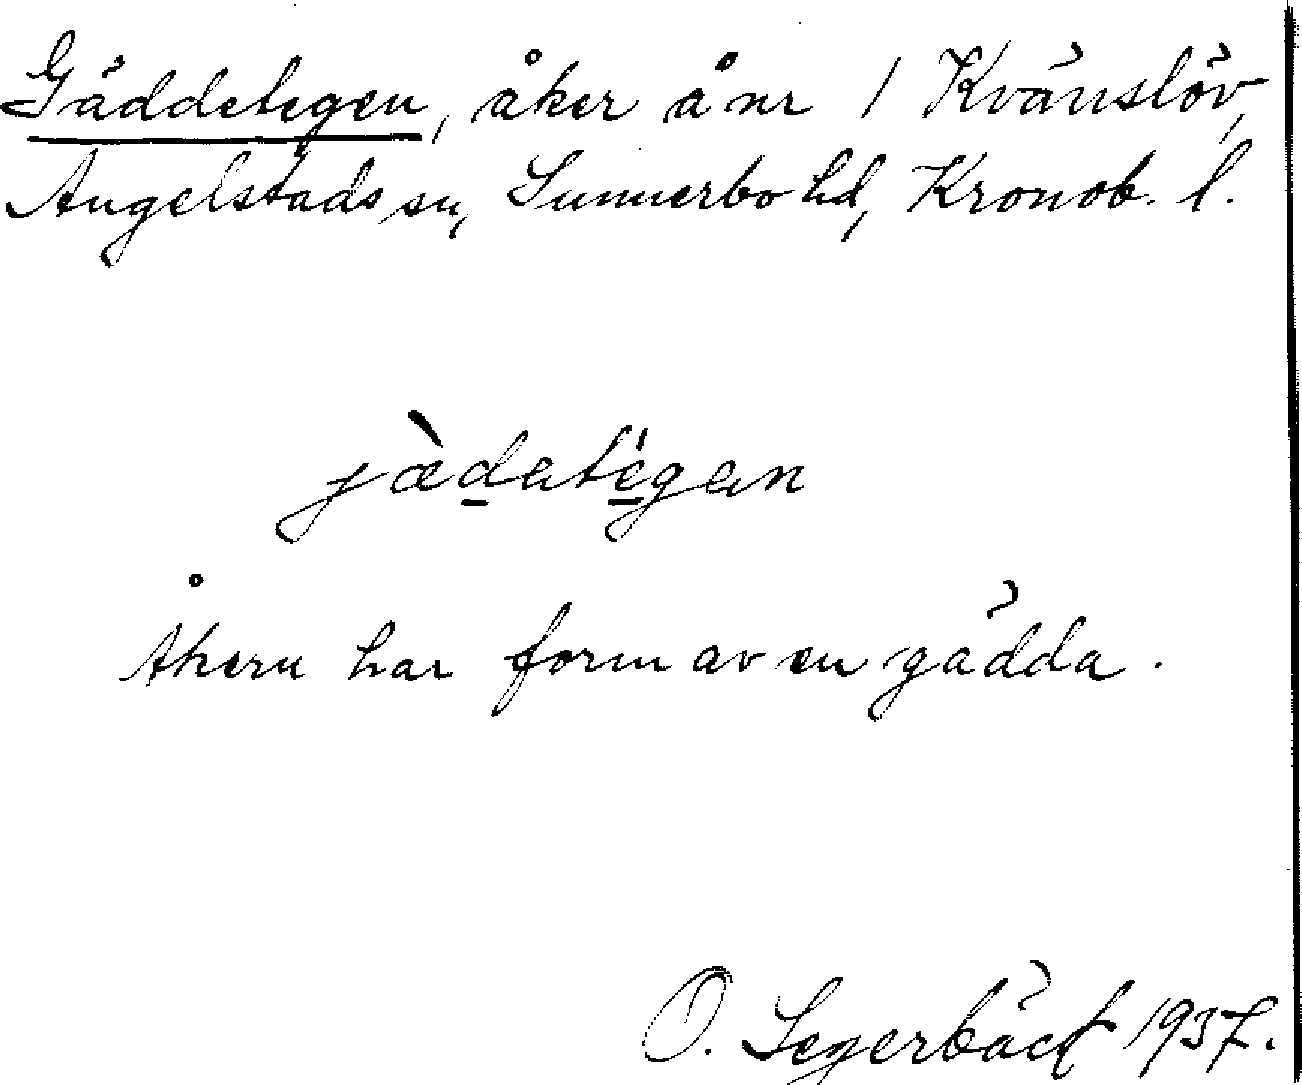 Gäddetegen, åker å nr 1 Kvänslöv,
Angelstads sn, Sunnerbo hd, Kronob. l.
jæ̀datégan
Åkern har form av en gädda.
O. Segerbäck 1937.